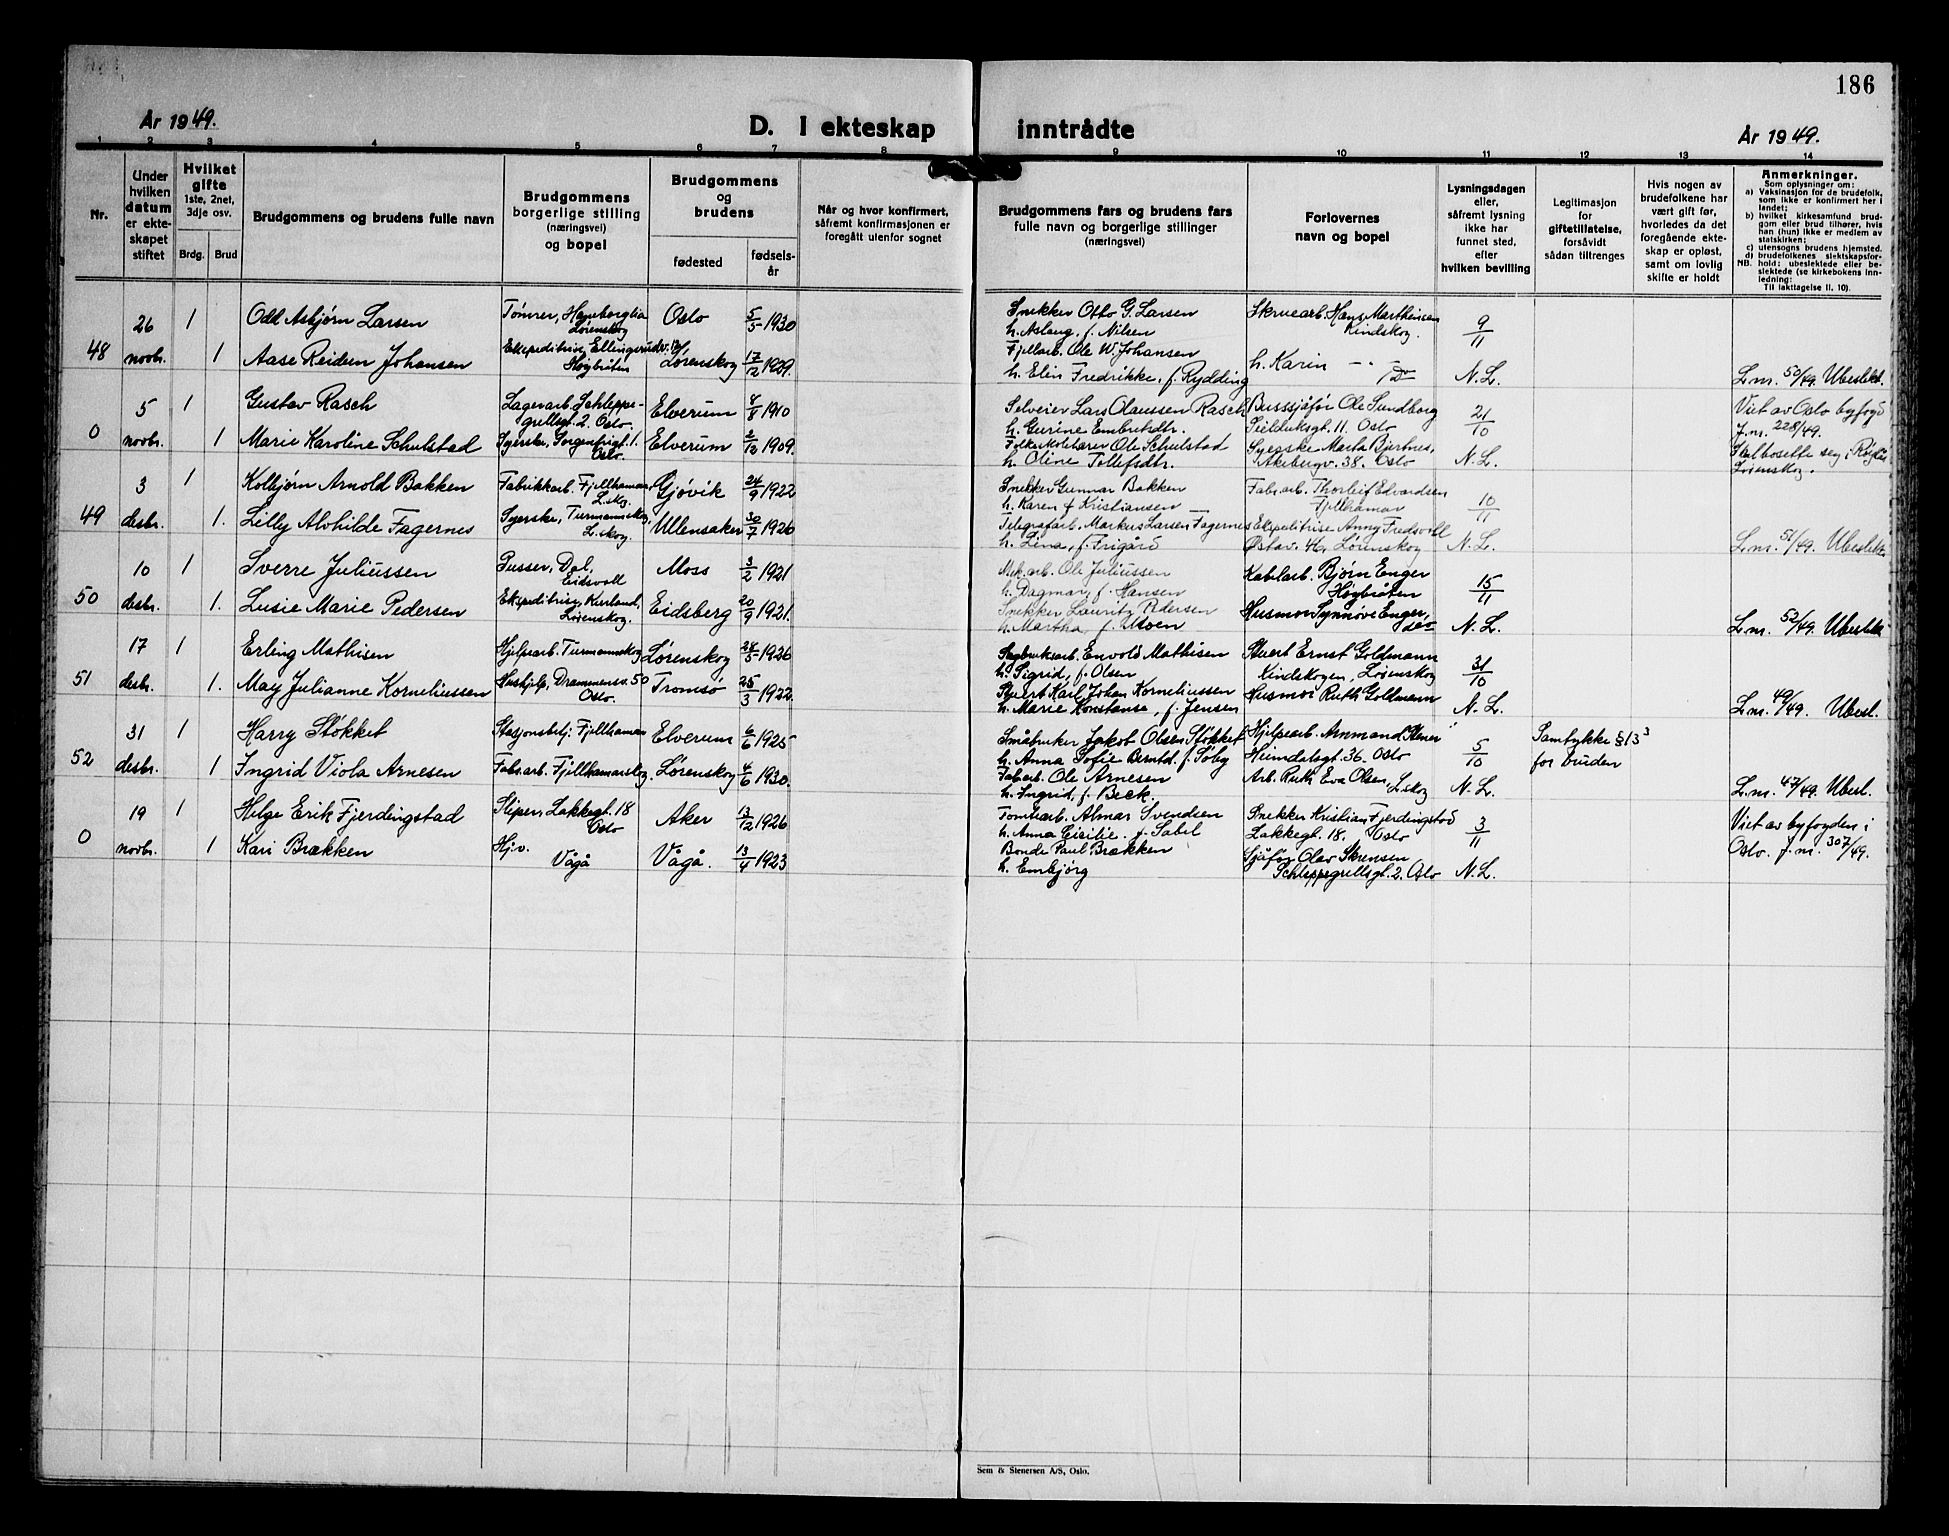 186
År 1949.
D. I ekteskap inntrådte
År 1949.
1 2 3 4 5 6 7 8 9 10 11 12 13 14
Nr.
Under hvilken datum er ekteskapet stiftet
Hvilket gifte 1ste, 2net, 3dje osv.
Brdg. Brud
Brudgommens og brudens fulle navn
Brudgommens borgerlige stilling (næringsvei) og bopel
Brudgommens og brudens
fødested
fødselsår
Når og hvor konfirmert, såfremt konfirmasjonen er foregått utenfor sognet
Brudgommens fars og brudens fars fulle navn og borgerlige stillinger (næringsvei)
Forlovernes navn og bopel
Lysningsdagen eller, såfremt lysning ikke har funnet sted, efter hvilken bevilling
Legitimasjon for giftetillatelse, forsåvidt sådan tiltrenges
Hvis nogen av brudefolkene har vært gift før, hvorledes da det foregående ekteskap er opløst, samt om lovlig skifte er holdt
Anmerkninger.
Som oplysninger om:
a) Vaksinasjon for de brudefolk, som ikke er konfirmert her i landet;
b) hvilket kirkesamfund brudgom eller brud tilhører, hvis han (hun) ikke er medlem av statskirken;
c) utensogns brudens hjemsted.
d) brudefolkenes slektskapsforhold: ubeslektede eller beslektede (se kirkebokens innledning:
NB. Til iakttagelse II. 10).
26 1 Odd Asbjørn Larsen Tømrer, Haneborglia Lørenskog Oslo 5/5 1930 Snekker Otto G. Larsen h. Aslaug, f. Nilsen Skruearb. Hans Marthinsen Kindskog. 9/11
48 novbr. 1 Aase Reidun Johansen Ekspeditrise, Ellingsrudv. Høybråten Lørenskog 17/12 1929. Fjellarb. Ole W. Johansen h. Elin Fredrikke, f. Rydding h. Karin N.L. L.m. 53/49. Ubeslekt.
5 1 Gustav Rasch Lagerarb. Schleppegrellsgt. 2. Oslo. Elverum 4/8 1910 Selveier Lars Olaussen Rasch h. Gurine Embretsdtr. Bussjåfør Ole Sundborg Seilduksgt. 11. Oslo 21/10 Viet av Oslo byfogd J.m. 228/49.
0 novbr. 1 Marie Karoline Schulstad Syerske, Sorgenfrigt. 1. Oslo. Elverum 2/12 1909. Ole Schulstad h. Oline Tollefsdtr. Syerske Marta Bjertnes, Akebergv. 38. Oslo N.L. Skal bosette seg i Lørenskog.
3 1 Kolbjørn Arnold Bakken Fabrikkarb. Fjellhamar, L.skog. Gjøvik 24/9 1922 Snekker Gunnar Bakken h. Karen f. Kristiansen Fabr.arb. Thorleif Edvardsen Fjellhamar 10/11
49 desbr. 1. Lilly Alvhilde Fagernes Syerske, Turmannskog, L.skog. Ullensaker 30/7 1926 Telegrafarb. Markus Larsen Fagernes h. Lina, f. Frigård Ekspeditrise Anny Fredsvoll Østav. 4, Lørenskog N.L. L.m. 51/49. Ubeslekt.
10 1 Sverre Juliussen Pusser, Dal, Eidsvoll Moss 3/2 1921 Mek.arb. Ole Juliussen h. Dagmar, f. Hansen Kabelarb. Bjørn Enger Høybråten 15/11
50 desbr. 1. Lusie Marie Pedersen Ekspeditrise, Kurland, Lørenskog. Eidsberg 20/9 1921. Snekker Lauritz Pedersen h. Martha, f. Moen Husmor Synnøve Enger, do N.L. L.m. 52/49. Ubeslekt.
17 1 Erling Mathisen Hjelpearb. Turmannskog Lørenskog 24/5 1926 Sagbruksarb. Envold Mathisen h. Sigrid, f. Olsen Stuert Ernst Goldmann Kindskogen, Lørenskog 31/10
51 desbr. 1. May Julianne Korneliussen Hushjelp, Drammensv. 50 Oslo. Tromsø 25/3 1922. Stuert Karl Johan Korneliussen h. Marie Konstanse, f. Jensen Husmor Ruth Goldmann N.L. L.m. 49/49. Ubesl.
31 1 Harry Støkket Stasjonsbetj. Fjellhamar Elverum 6/6 1925 Småbruker Jakob Olsen Støkket h. Anna Sofie Berntd. f. Søby Hjelpearb. Heimdalsgt. 36. Oslo 5/10 Samtykke §13³ for bruden
52 desbr. 1 Ingrid Viola Arnesen Fabr.arb. Fjellhamarskog, Lørenskog 4/6 1930. Fabr.arb. Ole Arnesen h. Ingrid, f. Beck. Arb. Ruth Eva Olsen, L.skog N.L. L.m. 47/49. Ubesl.
19 1 Helge Erik Fjerdingstad Sliper, Lakkegt. 18 Oslo Aker 13/12 1926 Tomtearb. Almar Svendsen h. Anna Cicilie, f. Sabel Snekker Kristian Fjerdingstad Lakkegt. 18. Oslo 3/11 Viet av byfogden i Oslo. J.m. 307/49.
0 novbr. 1 Kari Brækken Hj.v. Vågå Vågå. 13/4 1923 Bonde Paul Brækken h. Embjørg Sjåfør Olav Skrensen Schleppegrellsgt. 2. Oslo N.L.
Sem & Stenersen A/S, Oslo.